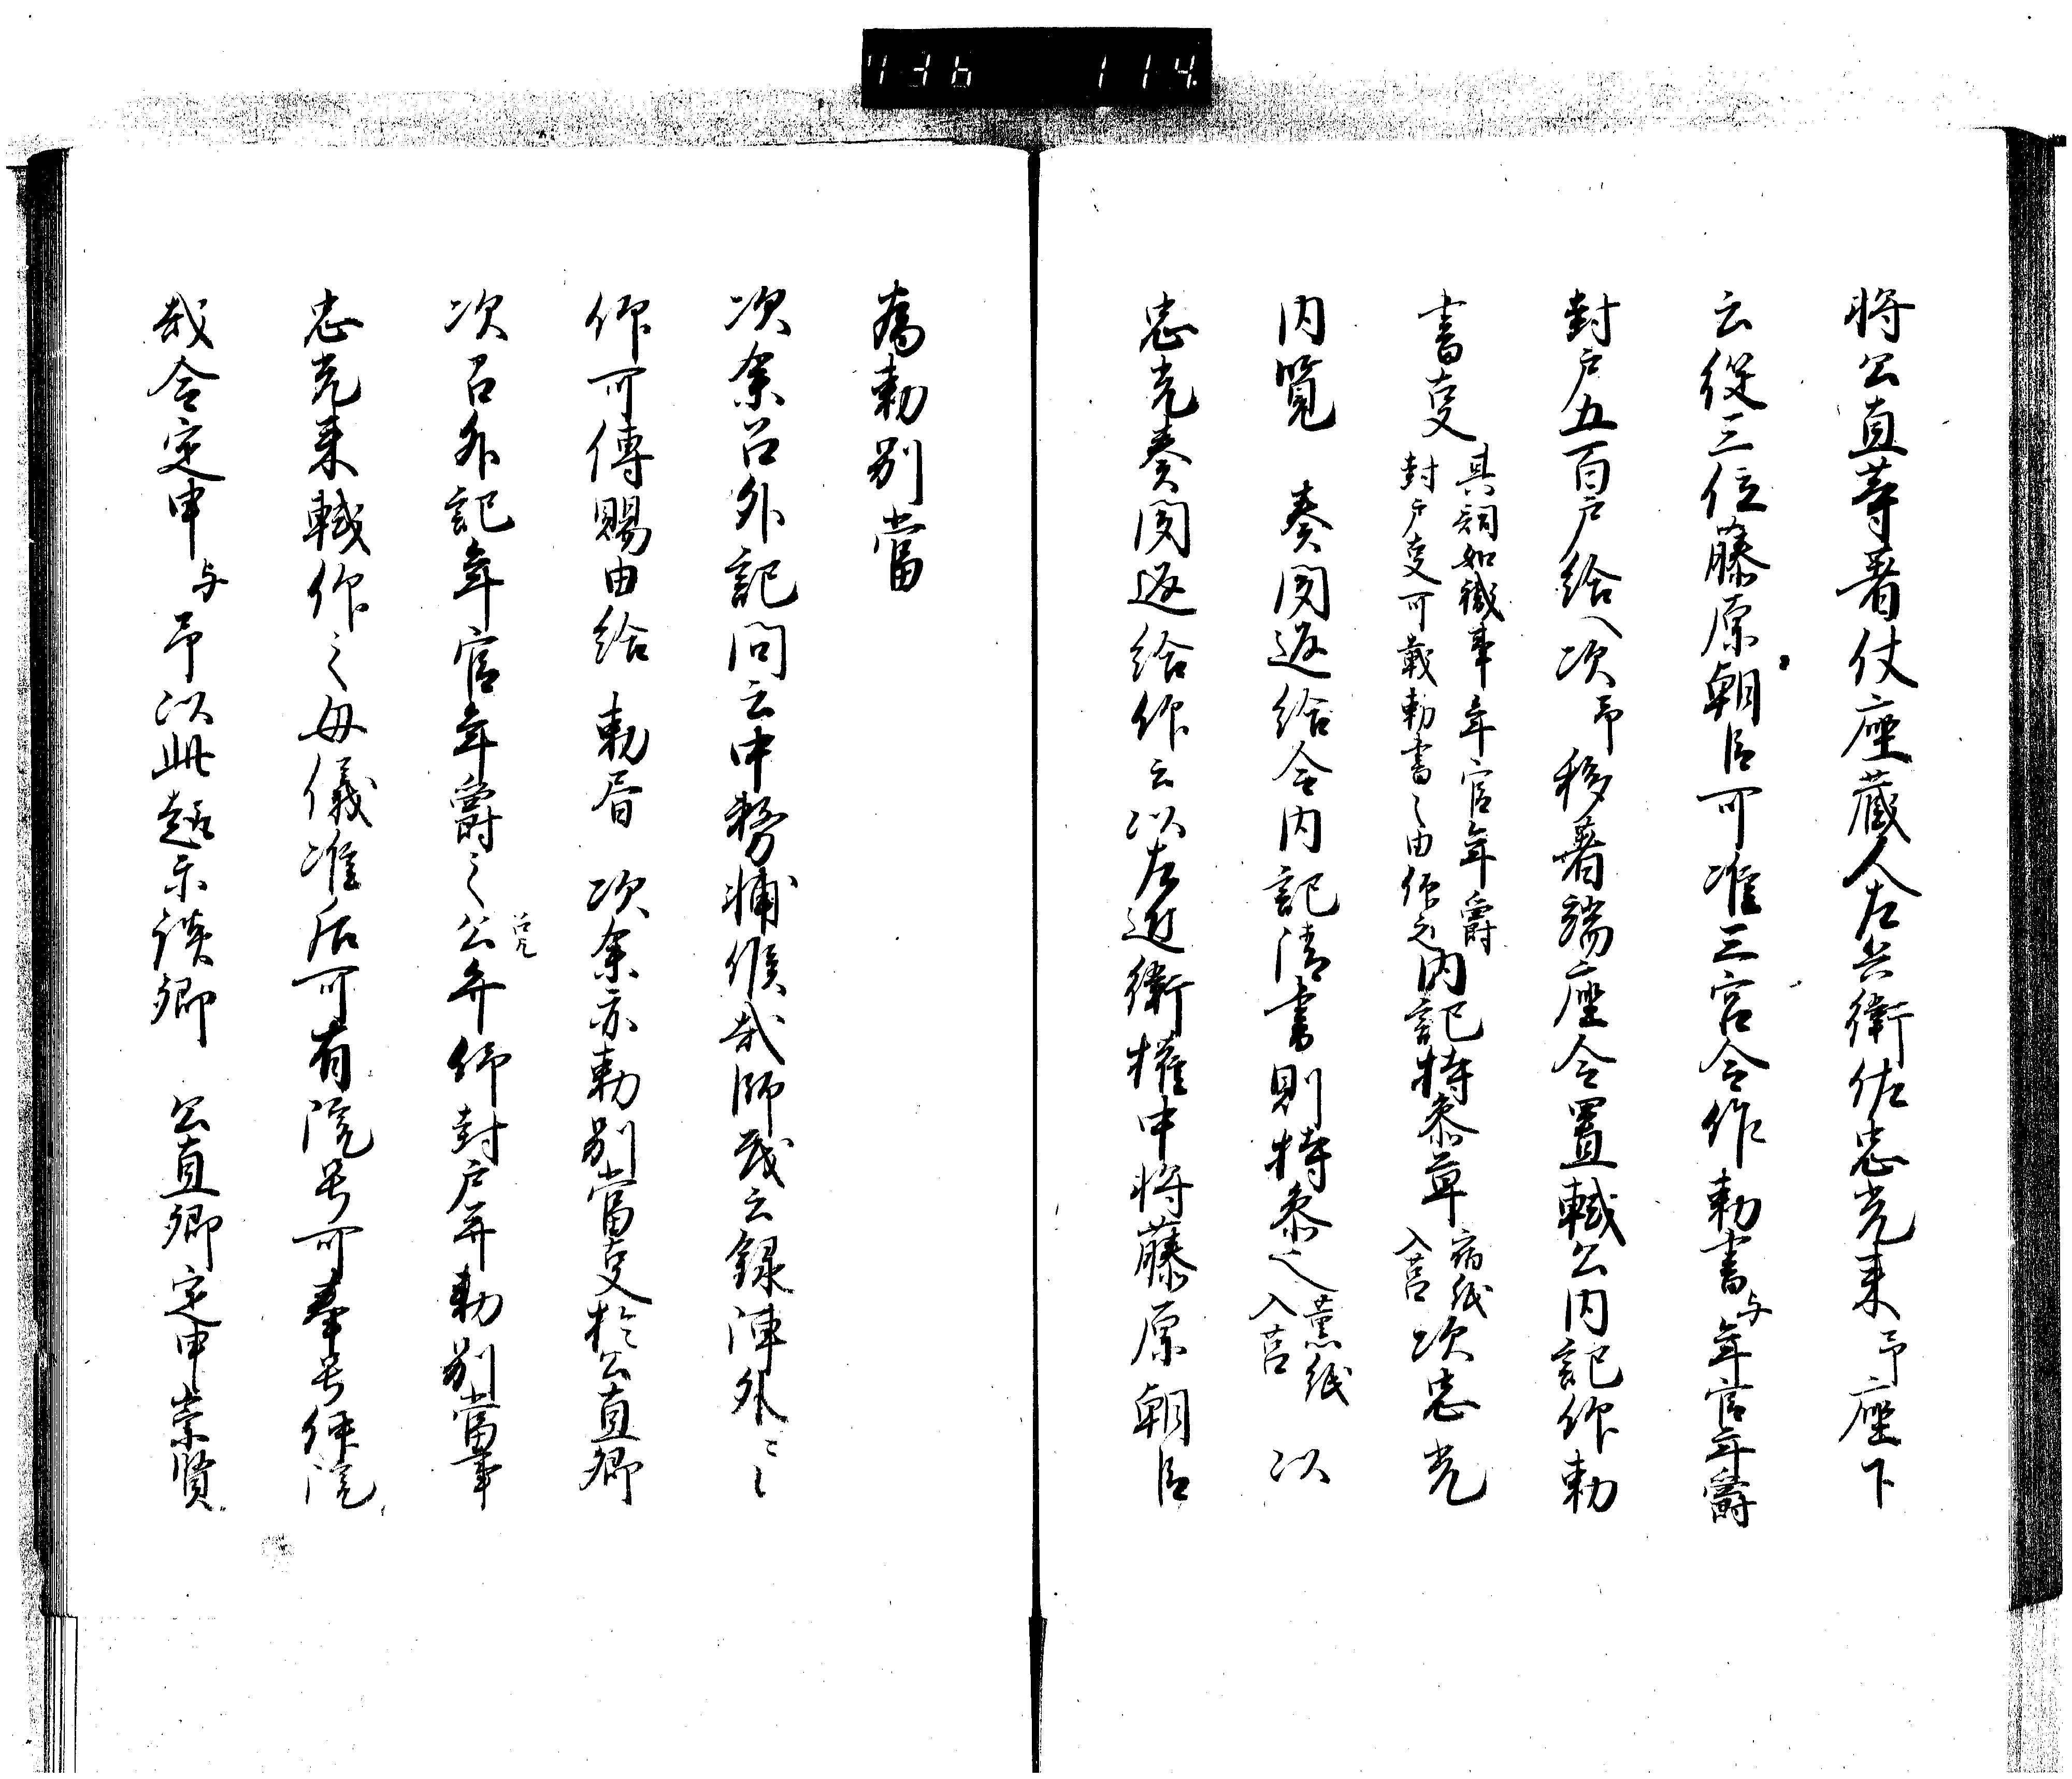 736 114
将公直等著仗座蔵人左兵衛佐忠光来予座下
云従三位藤原朝臣可准三宮令作勅書与年官年爵
封戸五百戸給へ次予移著端座令置軾公内記仰勅
書叓
具詞如職事年官年爵
封戸叓可載勅書之由仰之
内記持参草
宿紙
入莒
次忠光
内覧 奏聞返給令内記清書則持参之
薫紙
入莒
以
忠光奏聞返給仰云以左近衛権中将藤原朝臣
為勅別當
次余召外記問云中務輔候哉師茂云録陣外云々
仰可傳賜由給 勅書 次余亦勅別當叓於公直卿
次召外記年官年爵之公弁仰封戸并勅別當事
忠光来軾仰之毋儀准后可有院号可奉号何院
哉令定申与予以此趣示談卿 公直卿定申崇賢